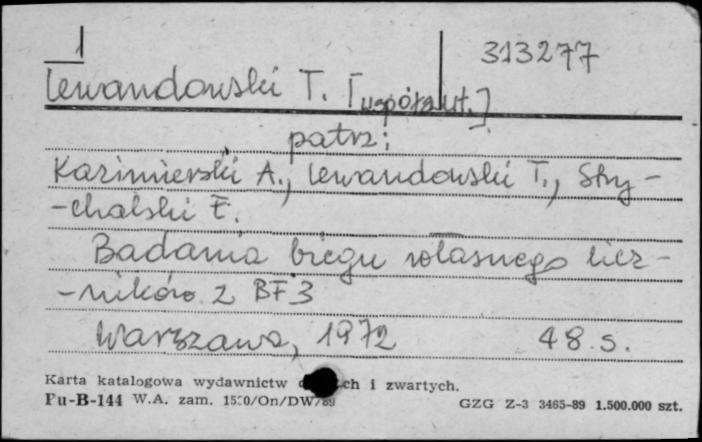 1
313277
Lewandowski T. [współaut.]
patrz:
Kazimierski A., Lewandowski T., Stry-
-chalski E.
Badania biegu własnego licz-
-ników z BF3
Warszawa, 1972 48 s.
Karta katalogowa wydawnictw i zwartych.
Pu-B-144 W.A. zam. /On/DW/89
GZG Z-3 3465-89 1.500.000 szt.